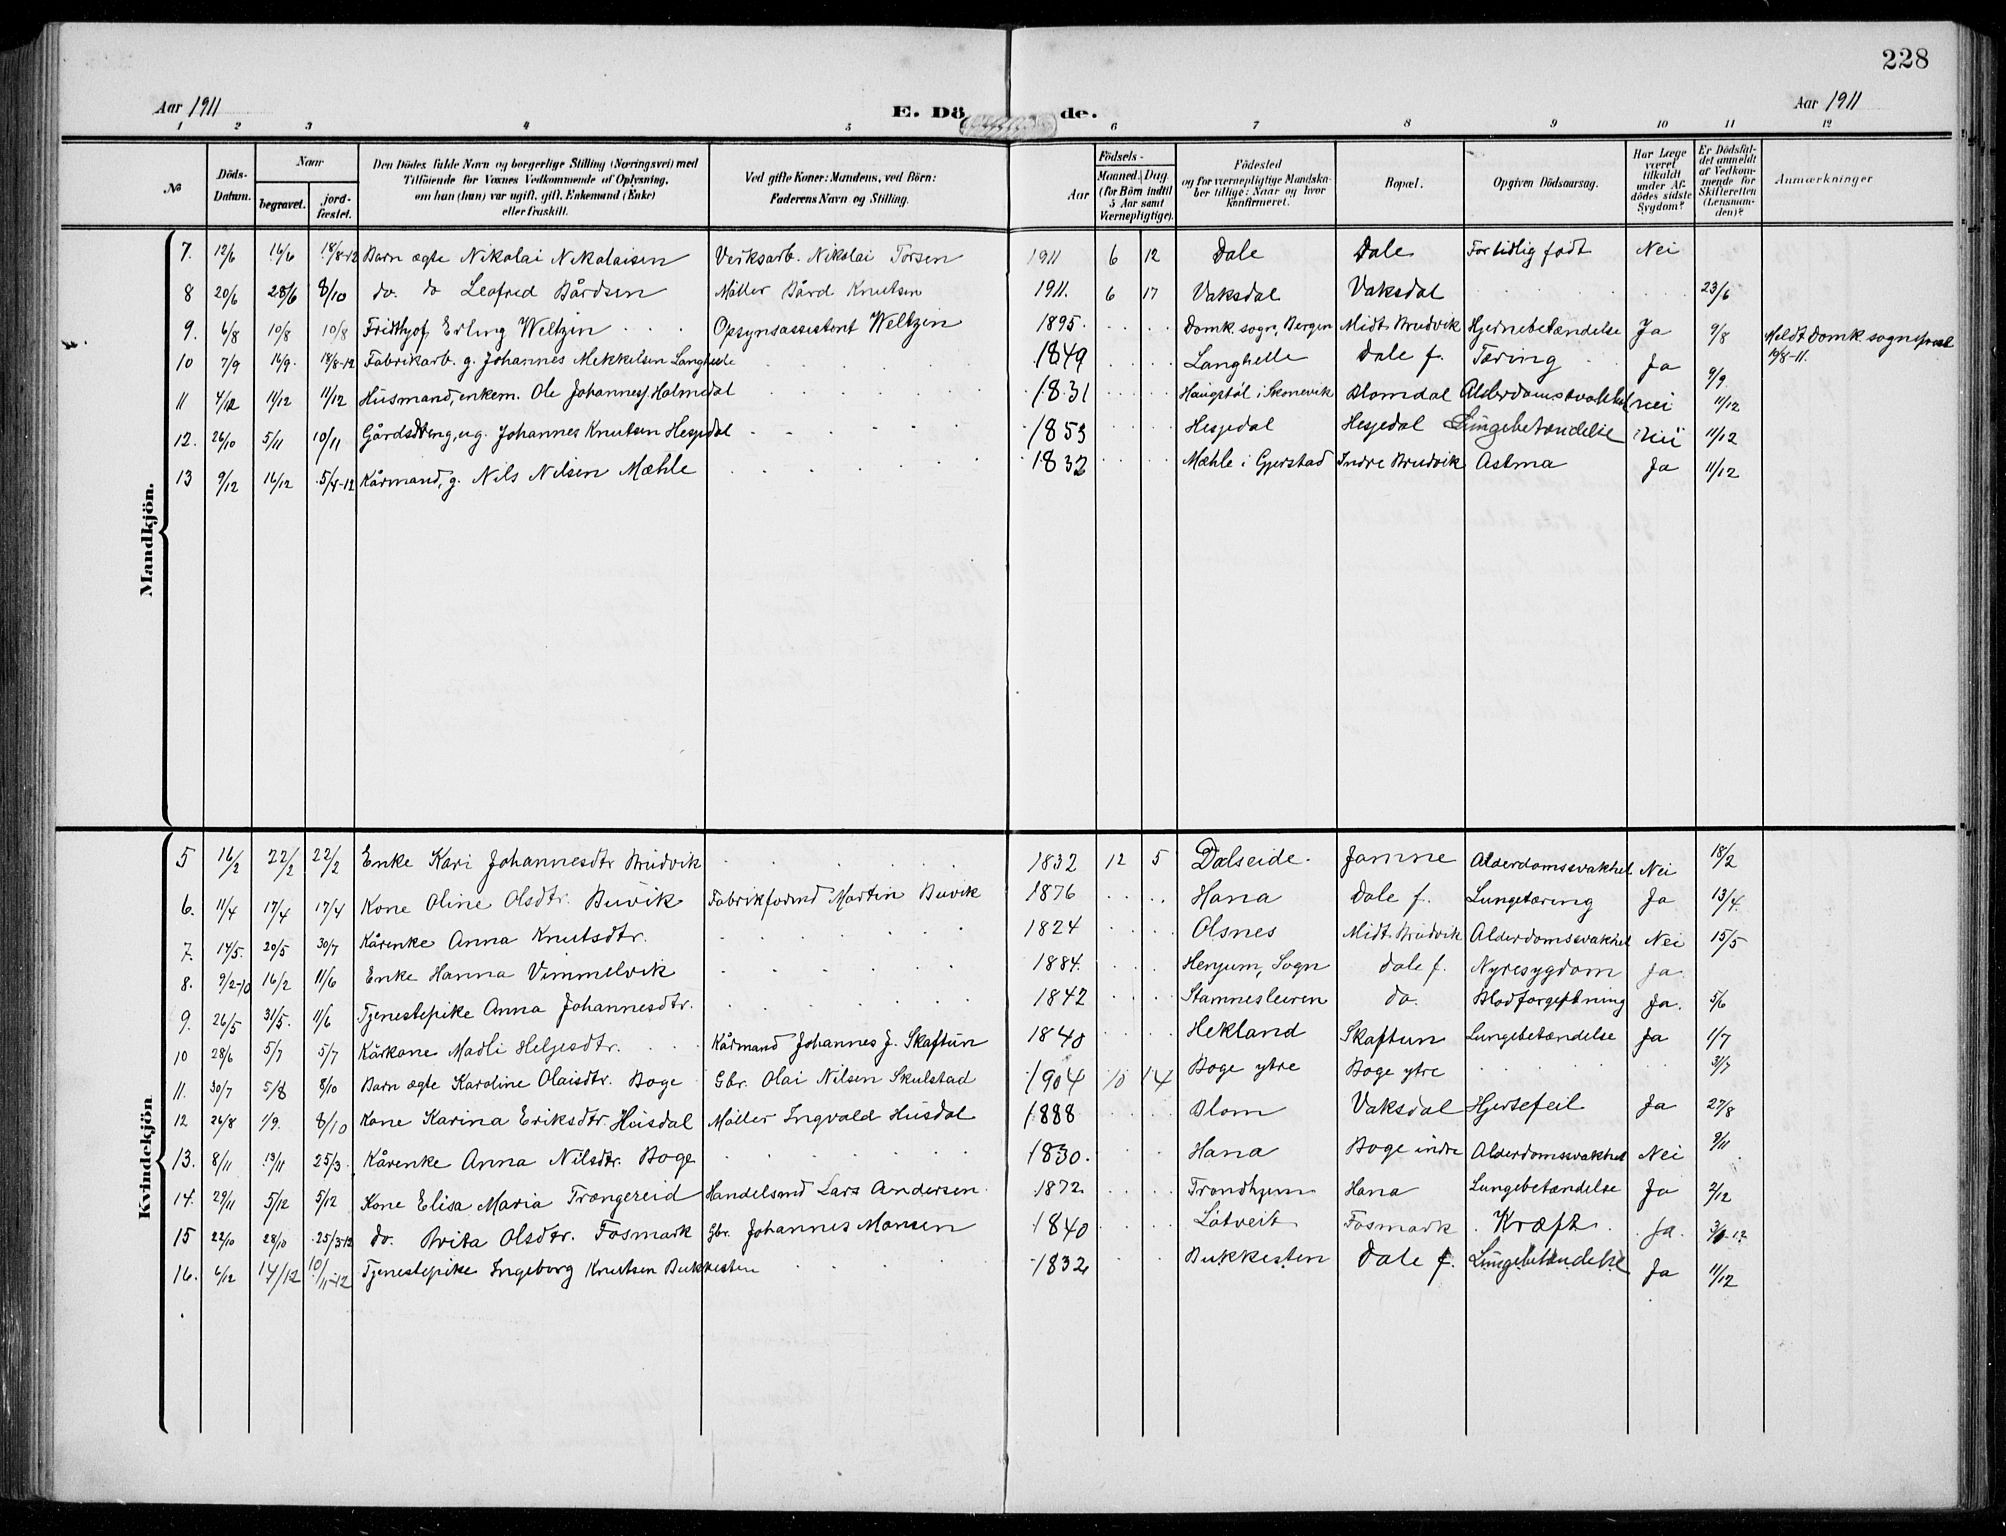 228
Aar 1911 E. Dö de. Aar 1911
1 2 3 4 5 6 7 8 9 10 11 12
№ Döds-Datum. Naar begravet. jord-fæstet. Den Dödes fulde Navn og borgerlige Stilling (Næringsvei) med Tilföiende for Voxnes Vedkommende af Oplysning, om han (hun) var ugift, gift, Enkemand (Enke) eller fraskilt. Ved gifte Koner: Mandens, ved Börn: Faderens Navn og Stilling. Födsels- Aar Maaned. Dag (for Börn indtil 5 Aar samt Værnepligtige). Födested og for værnepligtige Mandskaber tillige: Naar og hvor konfirmeret. Bopæl. Opgiven Dödsaarsag. Har Læge været tilkaldt under Afdödes sidste Sygdom? Er Dödsfaldet anmeldt af Vedkommende for Skifteretten (Lensmanden)? Anmærkninger
Mandkjön.
7. 12/6 16/6 18/8-12 Barn ægte Nikolai Nikolaisen Verksarb. Nikolai Torsen 1911 6 12 Dale Dale For tidlig født Nei
8 20/6 28/6 8/10 do. do Leofred Bårdsen Møller Bård Knutsen 1911. 6 17 Vaksdal Vaksdal 23/6
9. 6/8 10/8 10/8 Fridthjof Erling Weltzin Opsynsassistent Weltzin 1895. Domk. sogn, Bergen Midt. Brudvik Hjernebetændelse Ja 9/8 Meldt Domk. sogneprest
10 7/9 16/9. 18/8-12 Fabrikarb. g. Johannes Mikkelsen Langhelle 1849 Langhelle Dale f. Tæring Ja 9/9. 10/8-11.
11 4/12 11/12 11/12 Husmand, enkem. Ole Johannesj. Holmedal 1831 Haugstøl i Skonevik Blomdal Alderdomssvakhet nei 11/12
12. 26/10 5/11 10/11 Gårdsdreng, ug. Johannes Knutsen Hesjedal 1853 Hesjedal Hesjedal Lungebetændelse nei 11/12
13 9/12 16/12 5/4-12 Kårmand, g. Nils Nilsen Mæhle 1832 Mæhle i Gjerstad Indre Brudvik Astma Ja 11/12
Kvindekjön
5 16/2 22/2 22/2 Enke Kari Johannesdtr Brudvik 1832 12 5 Dalseide. Jamne Alderdomssvakhet Nei 18/2
6. 11/4 17/4 17/4 Kone Oline Olsdtr. Buvik Fabrikformd Martin Buvik 1876 Hana Dale f. Lungetæring Ja 13/4.
7. 14/5. 20/5 30/7 Kårenke Anna Knutsdtr. 1824 Olsnes Midt. Brudvik Alderdomssvakhet Nei 15/5
8. 9/2-10 16/2 11/6 Enke Hanna Vimmelvik 1884. Henjum, Sogn Dale f. Nyresygdom Ja.
9. 26/5 31/5. 11/6 Tjenestepike Anna Johannesdtr. 1842 Stamnesleiren do. Blodforgiftning Ja. 5/6
10 28/6 5/7 5/7 Kårkone Madli Helgesdtr. Kårmand Johannes J. Skaftun 1840 Hekland Skaftun Lungebetændelse Ja 1/7
11. 30/7 5/8 8/10 Barn ægte Karoline Olaisdtr. Boge Gbr. Olai Nilsen Skulstad 1904 10 14 Boge ytre Boge ytre 31/7
12 26/8 1/9. 8/10 Kone Karina Eriksdtr. Husdal Møller Ingvald Husdal 1888 Blom Vaksdal Hjertefeil Ja 27/8
13. 8/11 13/11 25/3. Kårenke Anna Nilsdtr. Boge 1830. Hana Boge indre Alderdomssvakhet Nei 9/11
14. 29/11 5/12 5/12 Kone Elisa Maria Trængereid Handelsmd Lars Andersen 1872 Trondhjem Hana Lungebetændelse Ja 2/12
15 22/10 28/10 25/3-12 do. Brita Olsdtr. Fosmark Gbr. Johannes Monsen 1840 Låtveit Fosmark Kræft. Ja.
16. 6/12 14/12 10/11-12 Tjenestepike Ingeborg Knutsen Bukkesten 1832 Bukkesten Dale f. Lungebetændelse Ja 11/12